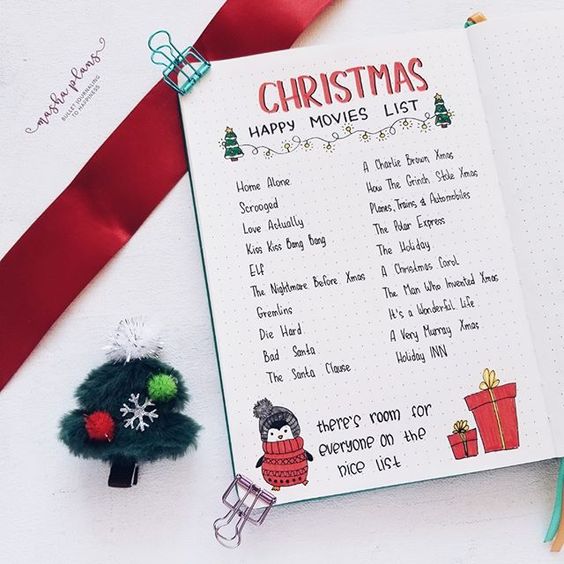 masha plans
BULLET JOURNALING
TO HAPPINESS
CHRISTMAS
HAPPY MOVIES LIST
Home Alone
Scrooged
Love Actually
Kiss Kiss Bang Bang
Elf
The Nightmare Before Xmas
Gremlins
Die Hard
Bad Santa
The Santa Clause
A Charlie Brown Xmas
How The Grinch Stole Xmas
Planes, Trains, & Automobiles
The Polar Express
The Holiday
A Christmas Carol
The Man Who Invented Xmas
It's a Wonderful Life
A Very Murray Xmas
Holiday INN
there's room for
everyone on the
nice list